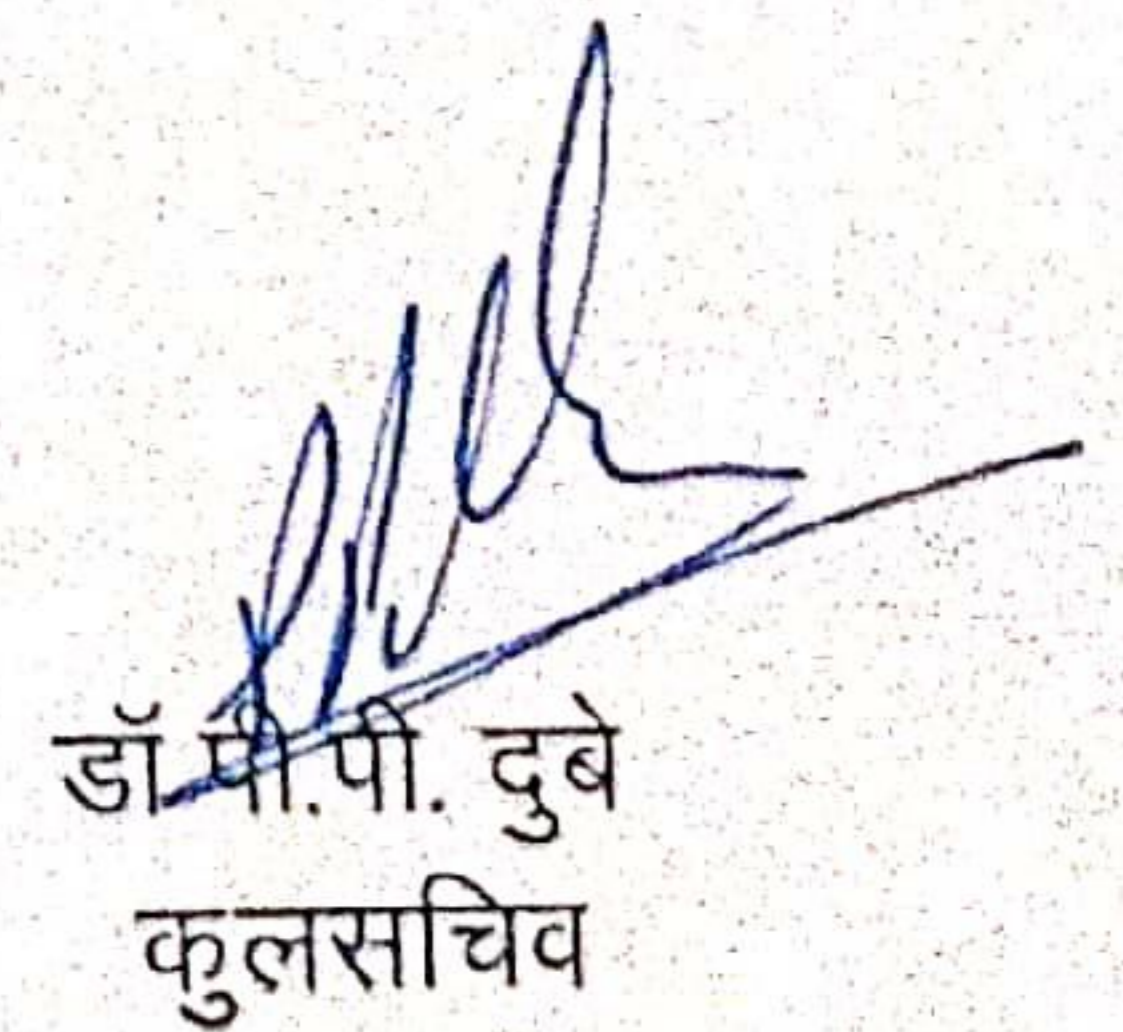 डॉ. पी.पी. दुबे
कुलसचिव